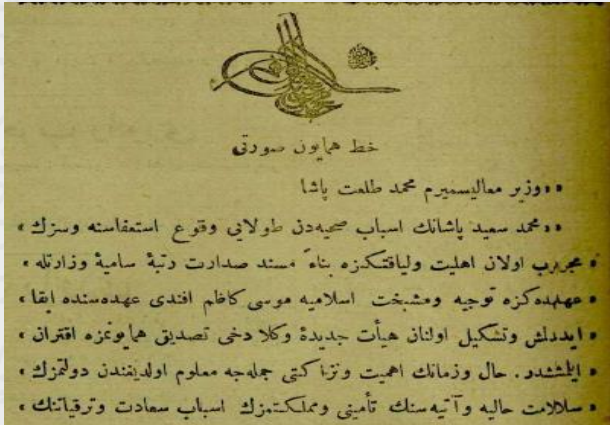 خط همایون صورتی
«وزیر معالیسمیرم محمد طلعت پاشا
«محمد سعید پاشانك اسباب صحیه‌دن طولایی وقوع استعفاسنه وسزك»
«مجرب اولان اهلیت ولیاقتكزه بناءً مسند صدارت رتبهٔ سامیهٔ وزارتله»
«عهده‌كزه توجیه ومشیخت اسلامیه موسی كاظم افندی عهده‌سنده ابقا»
«ایدلمش وتشكیل اولنان هیأت جدیدهٔ وكلا دخی تصدیق همایونمزه اقتران»
«ایلمشدر. حال وزمانك اهمیت ونزاكتی جمله‌جه معلوم اولدیغندن دولتمزك»
«سلامت حالیه وآتیه‌سنك تأمینی ومملكتمزك اسباب سعادت وترقیاتنك»